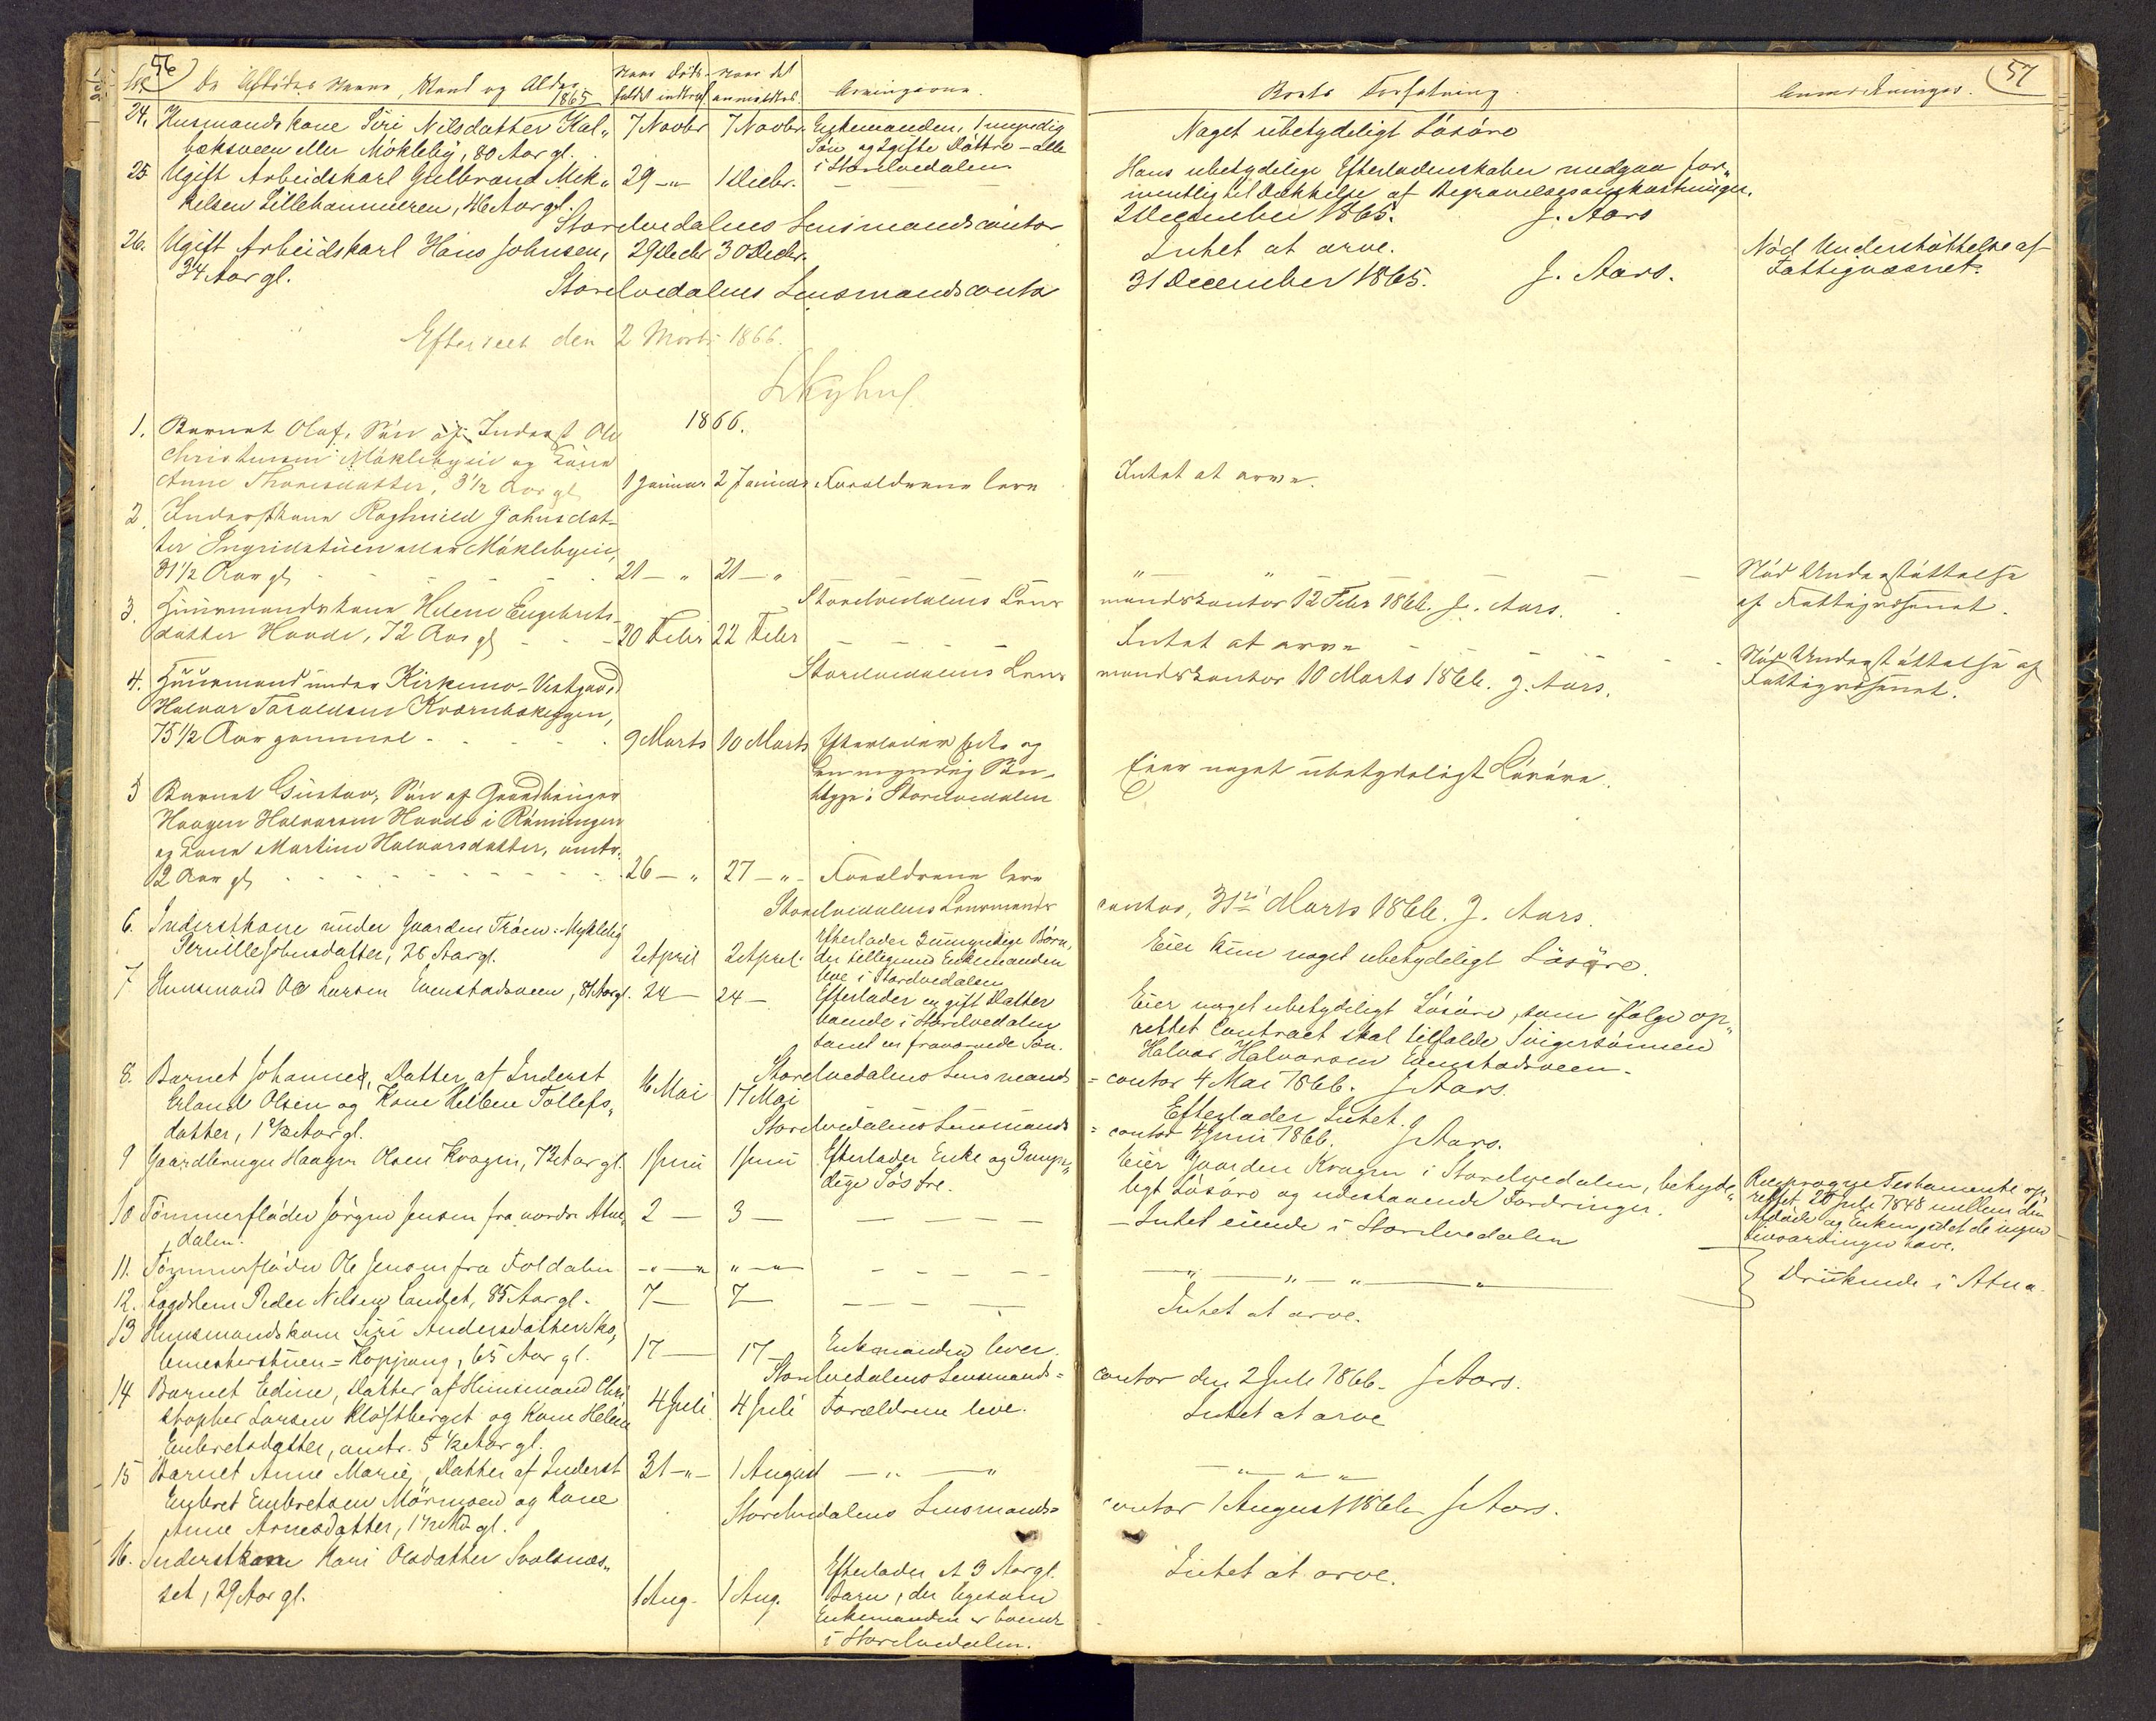 56
De Afdødes Navne, Stand og Alder. 1865
Naar Døds-
faldet indtraf
Naar det
anmeldtes.
Arvingerne.
24. Husmandskone Siri Nilsdatter Kal„
bæksveen eller Mökleby, 80 Aar gl.
7 Novbr
7 Novbr.
Enkemanden, 1 myndig
Sön og 2 gifte Døttre - alle
i Storelvedalen.
25 Ugift Arbeidskarl Gulbrand Mik„
kelsen Lillehammeren, 46 Aar gl.
29 - „
1 Decbr.
Storelvedalens Lensmandscontor
26. Ugift Arbeidskarl Hans Johnsen,
34 Aar gl.
29 Decbr
30 Decbr.
Storelvedalens Lensmandscontor
Efterseet den 2 Marts 1866.
1866.
1. Barnet Olaf, Sön af Inderst Ole
Christensen Möklebyeie og Kone
Anne Thoresdatter, 3 1/2 Aar gl
1 Januar
2 Januar
Forældrene leve
2. Inderstkone Ragnhild Johnsdat-
ter Ingridstuen eller Möklebyeie,
31 1/2 Aar gl
21 - „
21 - „
Storelvedalens Lens
3. Huusmandskone Helene Engebrets-
datter Hovde, 72 Aar gl
20 Febr
22 Febr
Storelvedalens Lens
4. Huusmand under Kirkemo-Vestgaard
Halvor Taraldsen Kværnbækeggen,
75 1/2 Aar gammel
9 Marts
10 Marts
Efterlader Enke og
en myndig Sön,
begge i Storelvedalen
5 Barnet Gustav, Sön af Gaardbruger
Haagen Halvorsen Hovde i Röningen
og Kone Martine Halvorsdatter, omtr.
12 Aar gl
26 - „
27 - „ -
Forældrene leve
Storelvedalens Lensmands
6. Inderstkone under Gaarden Tröen: Mykleby
Pernille Johnsdatter, 26 Aar gl.
2 April
2 April.
Efterlader 3 umyndige Börn,
der tilligemed Enkemanden
leve i Storelvedalen
7 Huusmand Ole Larsen Evenstadsveen, 81 Aar gl.
24 -
24 -
Efterlader en gift Datter
boende i Storelvedalen
samt en fraværende Sön.
Storelvedalens Lensmands
8. Barnet Johanne, Datter af Inderst
Erland Olsen og Kone Helene Tollefs„
datter, 1 1/2 Aar gl.
16 Mai
17 Mai
Storelvedalens Lensmands
9 Gaardbruger Haagen Olsen Kragen, 72 Aar gl.
1 Juni
1 Juni
Efterlader Enke og 3 myn„
dige Söstre.
10 Tömmerflöder Jörgen Jensen fra nordre Atne„
dalen.
2 -
3 -
11. Tömmerflöder Ole Jensen fra Foldalen
- „ - „
„ - „
12. Lægdslem Peder Nilsen Landet, 85 Aar gl.
7 -
7 -
13 Huusmandskone Siri Andersdatter Sko„
lemesterstuen = Koppang, 65 Aar gl.
17 -
17 -
Enkemanden lever.
Storelvedalens Lensmands =
14 Barnet Edine, Datter af Huusmand Chri
stopher Larsen Klöftberget og Kone Helene
Embretsdatter, omtr. 5 1/2 Aar gl.
4 Juli
4 Juli
Forældrene leve.
15 Barnet Anne Marie, Datter af Inderst
Embret Embretsen Mörmoen og Kone
Anne Arnesdatter, 1 1/2 Aar gl.
31 - „ -
1 August
- „ - „
Storelvedalens Lensmands=
16. Inderstkone Kari Olsdatter Svalsnæs„
set, 29 Aar gl.
1 Aug.
1 Aug.
Efterlader et 3 Aar gl.
Barn, der ligesom
Enkemanden er boende
i Storelvedalen.
57
Boets Forfatning.
Anmærkninger.
Noget ubetydeligt Lösöre
Hans ubetydelige Efterladenskaber medgaa for„
mentlig til Dækkelse af Begravelsesomkostninger.
2 December 1865. J. Aars
Intet at arve.
31 December 1865. J. Aars.
Nöd Understöttelse af
Fattigvæsenet.
Intet at arve.
„ - „ -
Nöd Understöttelse
af Fattigvæsenet.
mandskontor 12 Febr 1866. J. Aars.
Intet at arve
Nöd Understöttelse af
Fattigvæsenet.
mandskontor 10 Marts 1866. J. Aars.
Eier noget ubetydeligt Lösöre.
contor, 31te Marts 1866. J. Aars.
Eier kun noget ubetydeligt Lösöre.
Eier noget ubetydeligt Lösöre, som ifölge op„
rettet Contract skal tilfalde Svigersönnen
Halvor Halvorsen Evenstadsveen.
= contor 4 Mai 1866. J Aars.
Efterlader Intet.
= contor 4 Juni 1866. J Aars.
Eier Gaarden Kragen i Storelvedalen, betyde„
ligt Lösöre og udestaaende Fordringer.
Reciprogve Testamente op„
rettet 20 Juli 1848 mellem den
Afdöde og Enken, idet de ingen
Livsarvinger have.
- Intet eiende i Storelvedalen
- „ - „ - „ - „
Druknede i Atna.
Intet at arve.
contor den 2 Juli 1866. J Aars.
Intet at arve
- „ - „ - „
contor 1 August 1866 J Aars.
Intet at arve.